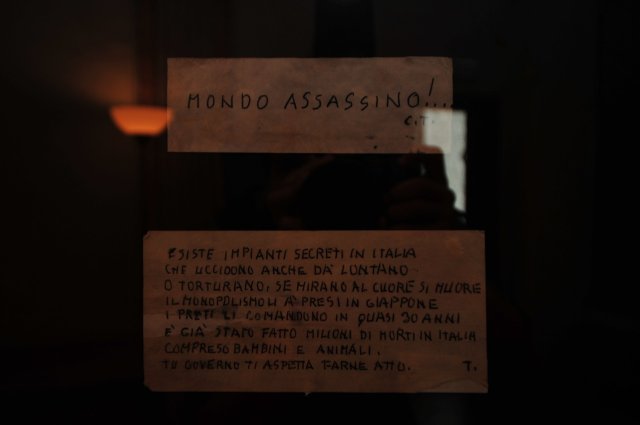 MONDO ASSASSINO!...
C.T.
ESISTE IMPIANTI SECRETI IN ITALIA
CHE UCCIDONO ANCHE DA' LONTANO
O TORTURANO, SE MIRANO AL CUORE SI MUORE
IL MONOPOLISMO LI A' PRESI IN GIAPPONE
I PRETI LI COMANDONO IN QUASI 30 ANNI
E' GIÀ STATO FATTO MILIONI DI MORTI IN ITALIA
COMPRESO BAMBINI E ANIMALI.
TU GOVERNO TI ASPETTA FARNE ATTO. T.